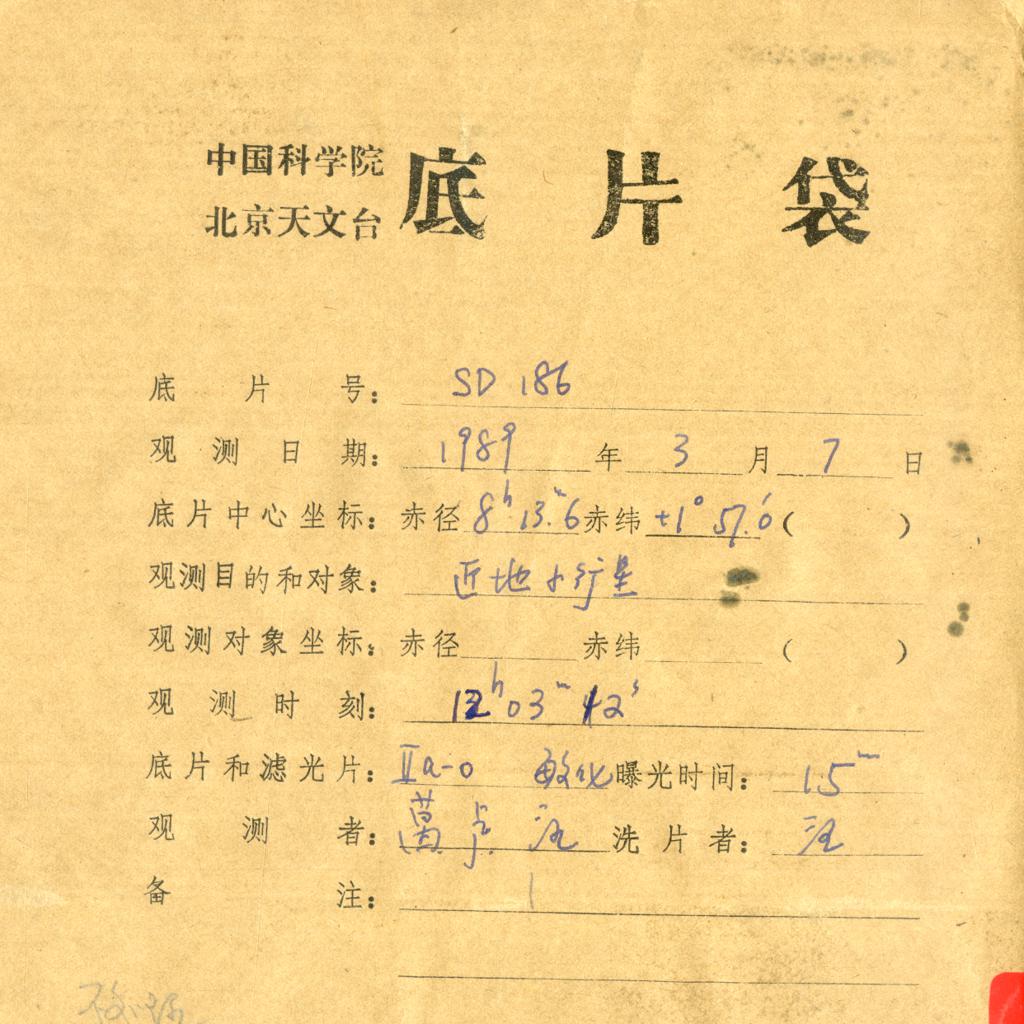 中国科学院
北京天文台
底片袋
底片号： SD 186
观测日期： 1989 年 3 月 7 日
底片中心坐标： 赤径 8h 13m.6 赤纬 +1° 57.′0 ( )
观测目的和对象： 近地小行星
观测对象坐标： 赤径 赤纬 ( )
观测时刻： 12h 03m 42s
底片和滤光片： IIa-o 敏化 曝光时间： 15m
观测者： 汪 洗片者： 汪
备注：